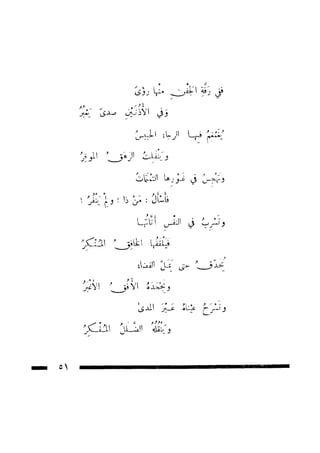 ففي رَفَّةِ الجَفْنِ منْها رؤىً
وفي الأُذْنَيْنِ صدىً يَعْبُرُ
يُغَمْغِمُ فيها الرجاءُ الحبيسُ
ويَنْفَلِتُ الرهَقُ الموقِرُ
وتهْجِسُ في غَوْرِها التمْتَماتُ
فأسْأَلُ : مَنْ ذا ؛ ولِمْ يَنْفُرُ ؛
وتَسْرِبُ في النفْسِ أنّاتُها
فيَلْقَفُها الخافِقُ المُنْكِرُ
يُحَدِّقُ حتى يَمَلَّ الفضاءُ
ويَجْمَدُهُ الأُفُقُ الأَغْبَرُ
وتَسْرَحُ عيْناهُ عَبْرَ المدى
ويَنْقُلُهُ المُنْكِرُ
٥١